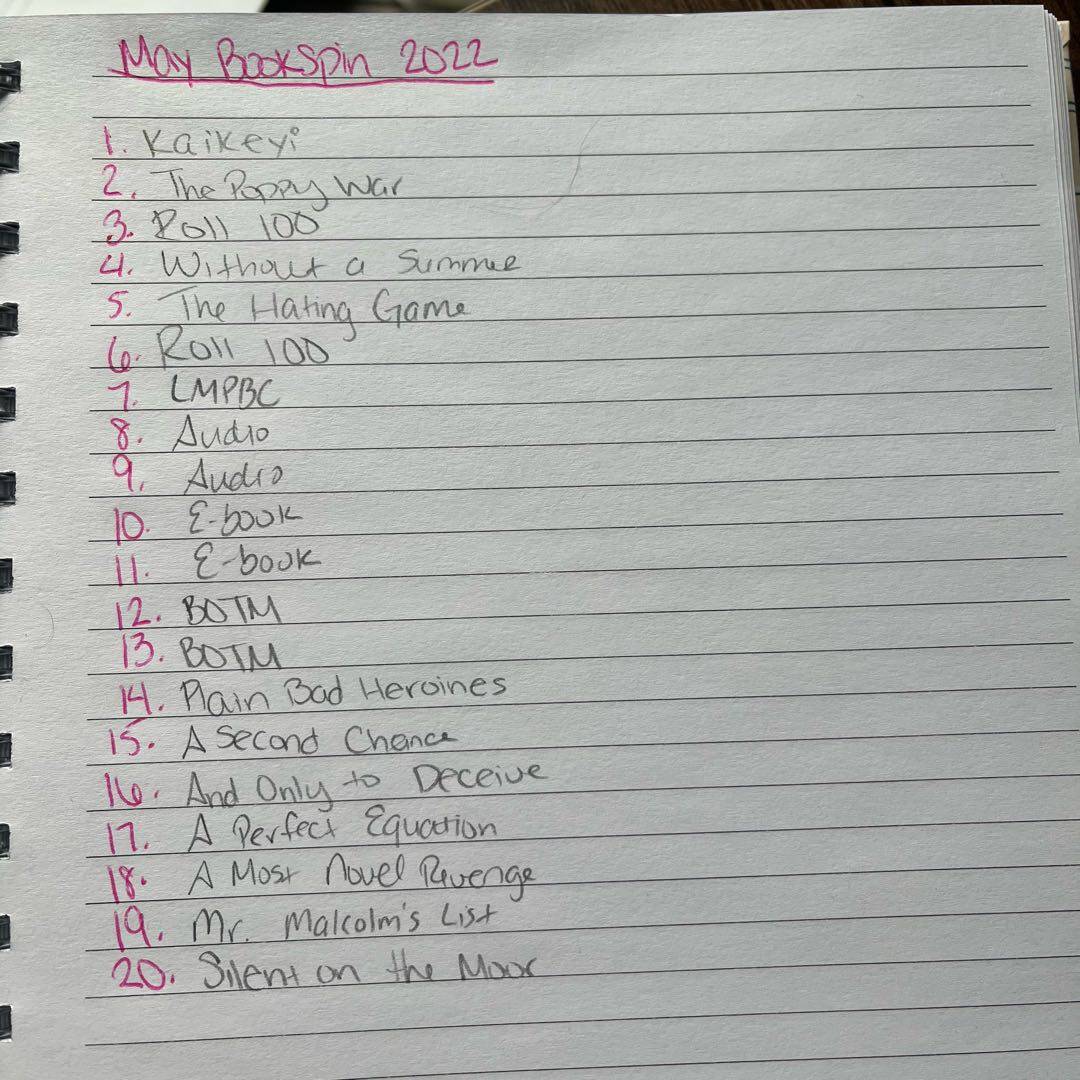 May BookSpin 2022
1. Kaikeyi
2. The Poppy War
3. Roll 100
4. Without a Summer
5. The Hating Game
6. Roll 100
7. LMPBC
8. Audio
9. Audio
10. E-book
11. E-book
12. BOTM
13. BOTM
14. Plain Bad Heroines
15. A Second Chance
16. And Only to Deceive
17. A Perfect Equation
18. A Most Novel Revenge
19. Mr. Malcolm's List
20. Silent on the Moor